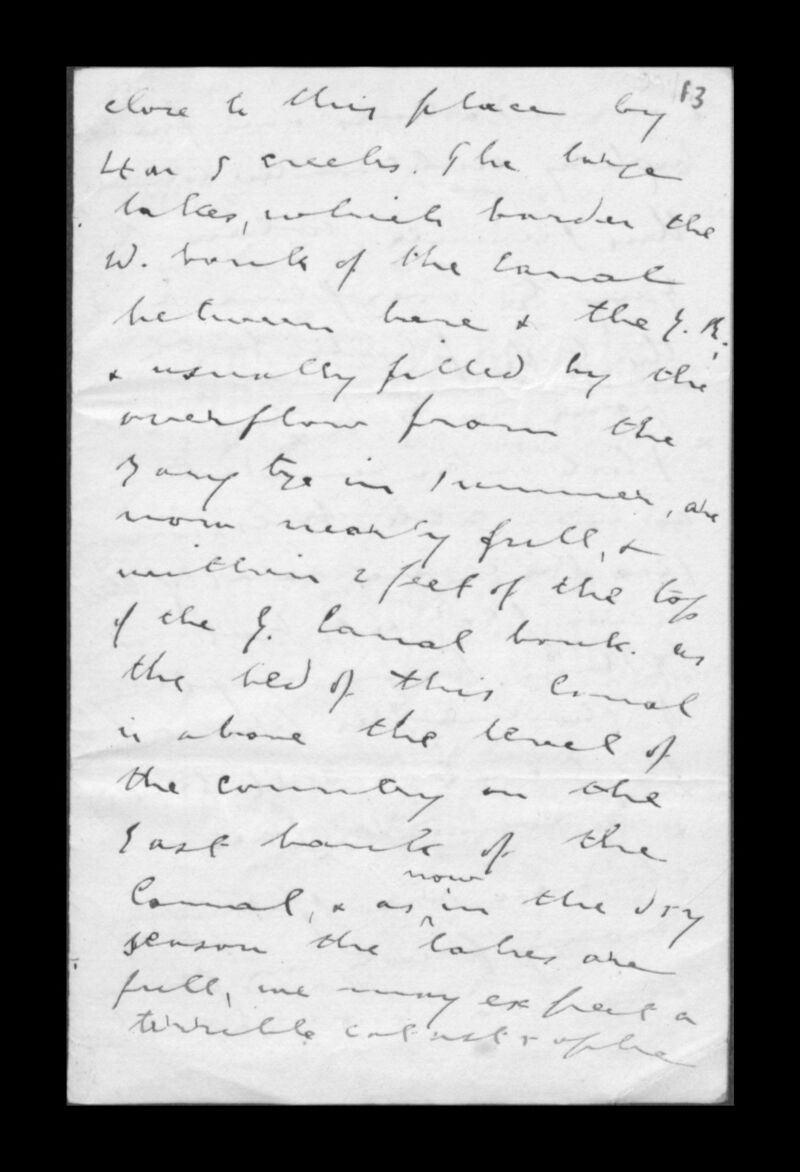 13
close to this place by
4 or 5 creeks. The large
lakes, which border the
W. bank of the Canal
between here & the Y. R.
& usually filled by the
overflow from the
Yang tze in summer, are
now nearly full, &
within 2 feet of the top
of the G. Canal bank. as
the bed of this Canal
is above the level of
the country on the
East bank of the
Canal, & as now in the dry
season the lakes are
full, we may expect a
terrible catastrophe